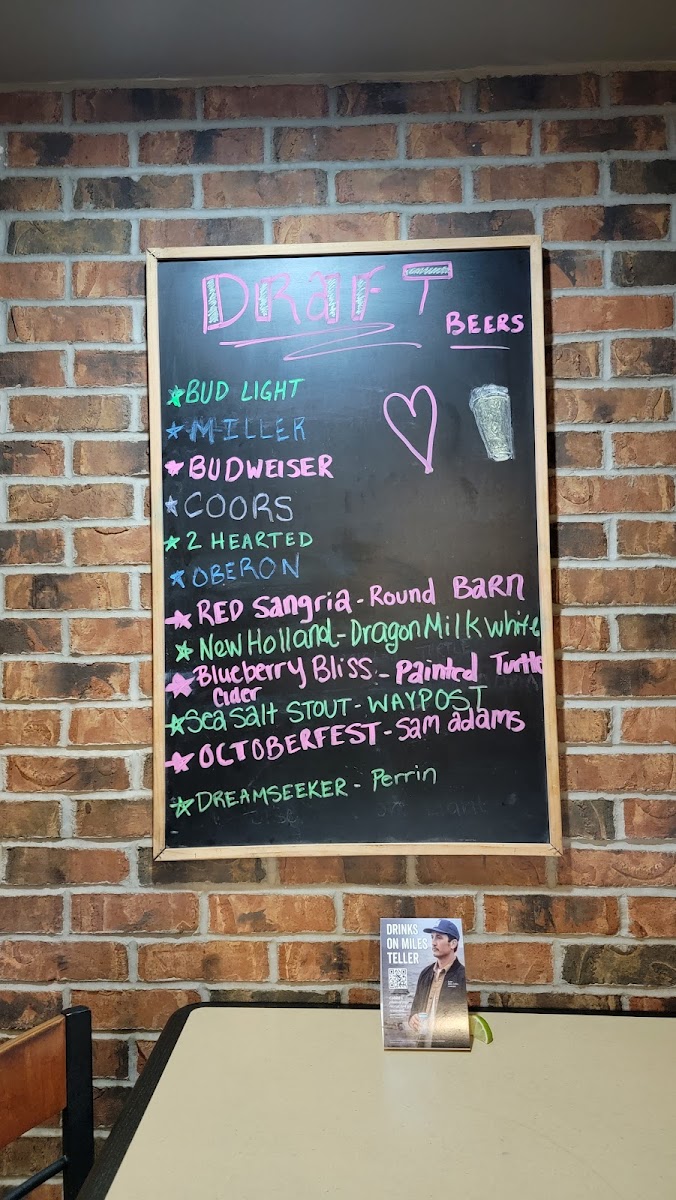 DRAFT
BEERS
BUD LIGHT
MILLER
BUDWEISER
COORS
2 HEARTED
OBERON
RED Sangria - Round BARN
New Holland - Dragon Milk white
Blueberry Bliss - Painted Turtle
Cider
Sea Salt STOUT - WAYPOST
OCTOBERFEST - Sam adams
DREAMSEEKER - Perrin
DRINKS
ON MILES
TELLER